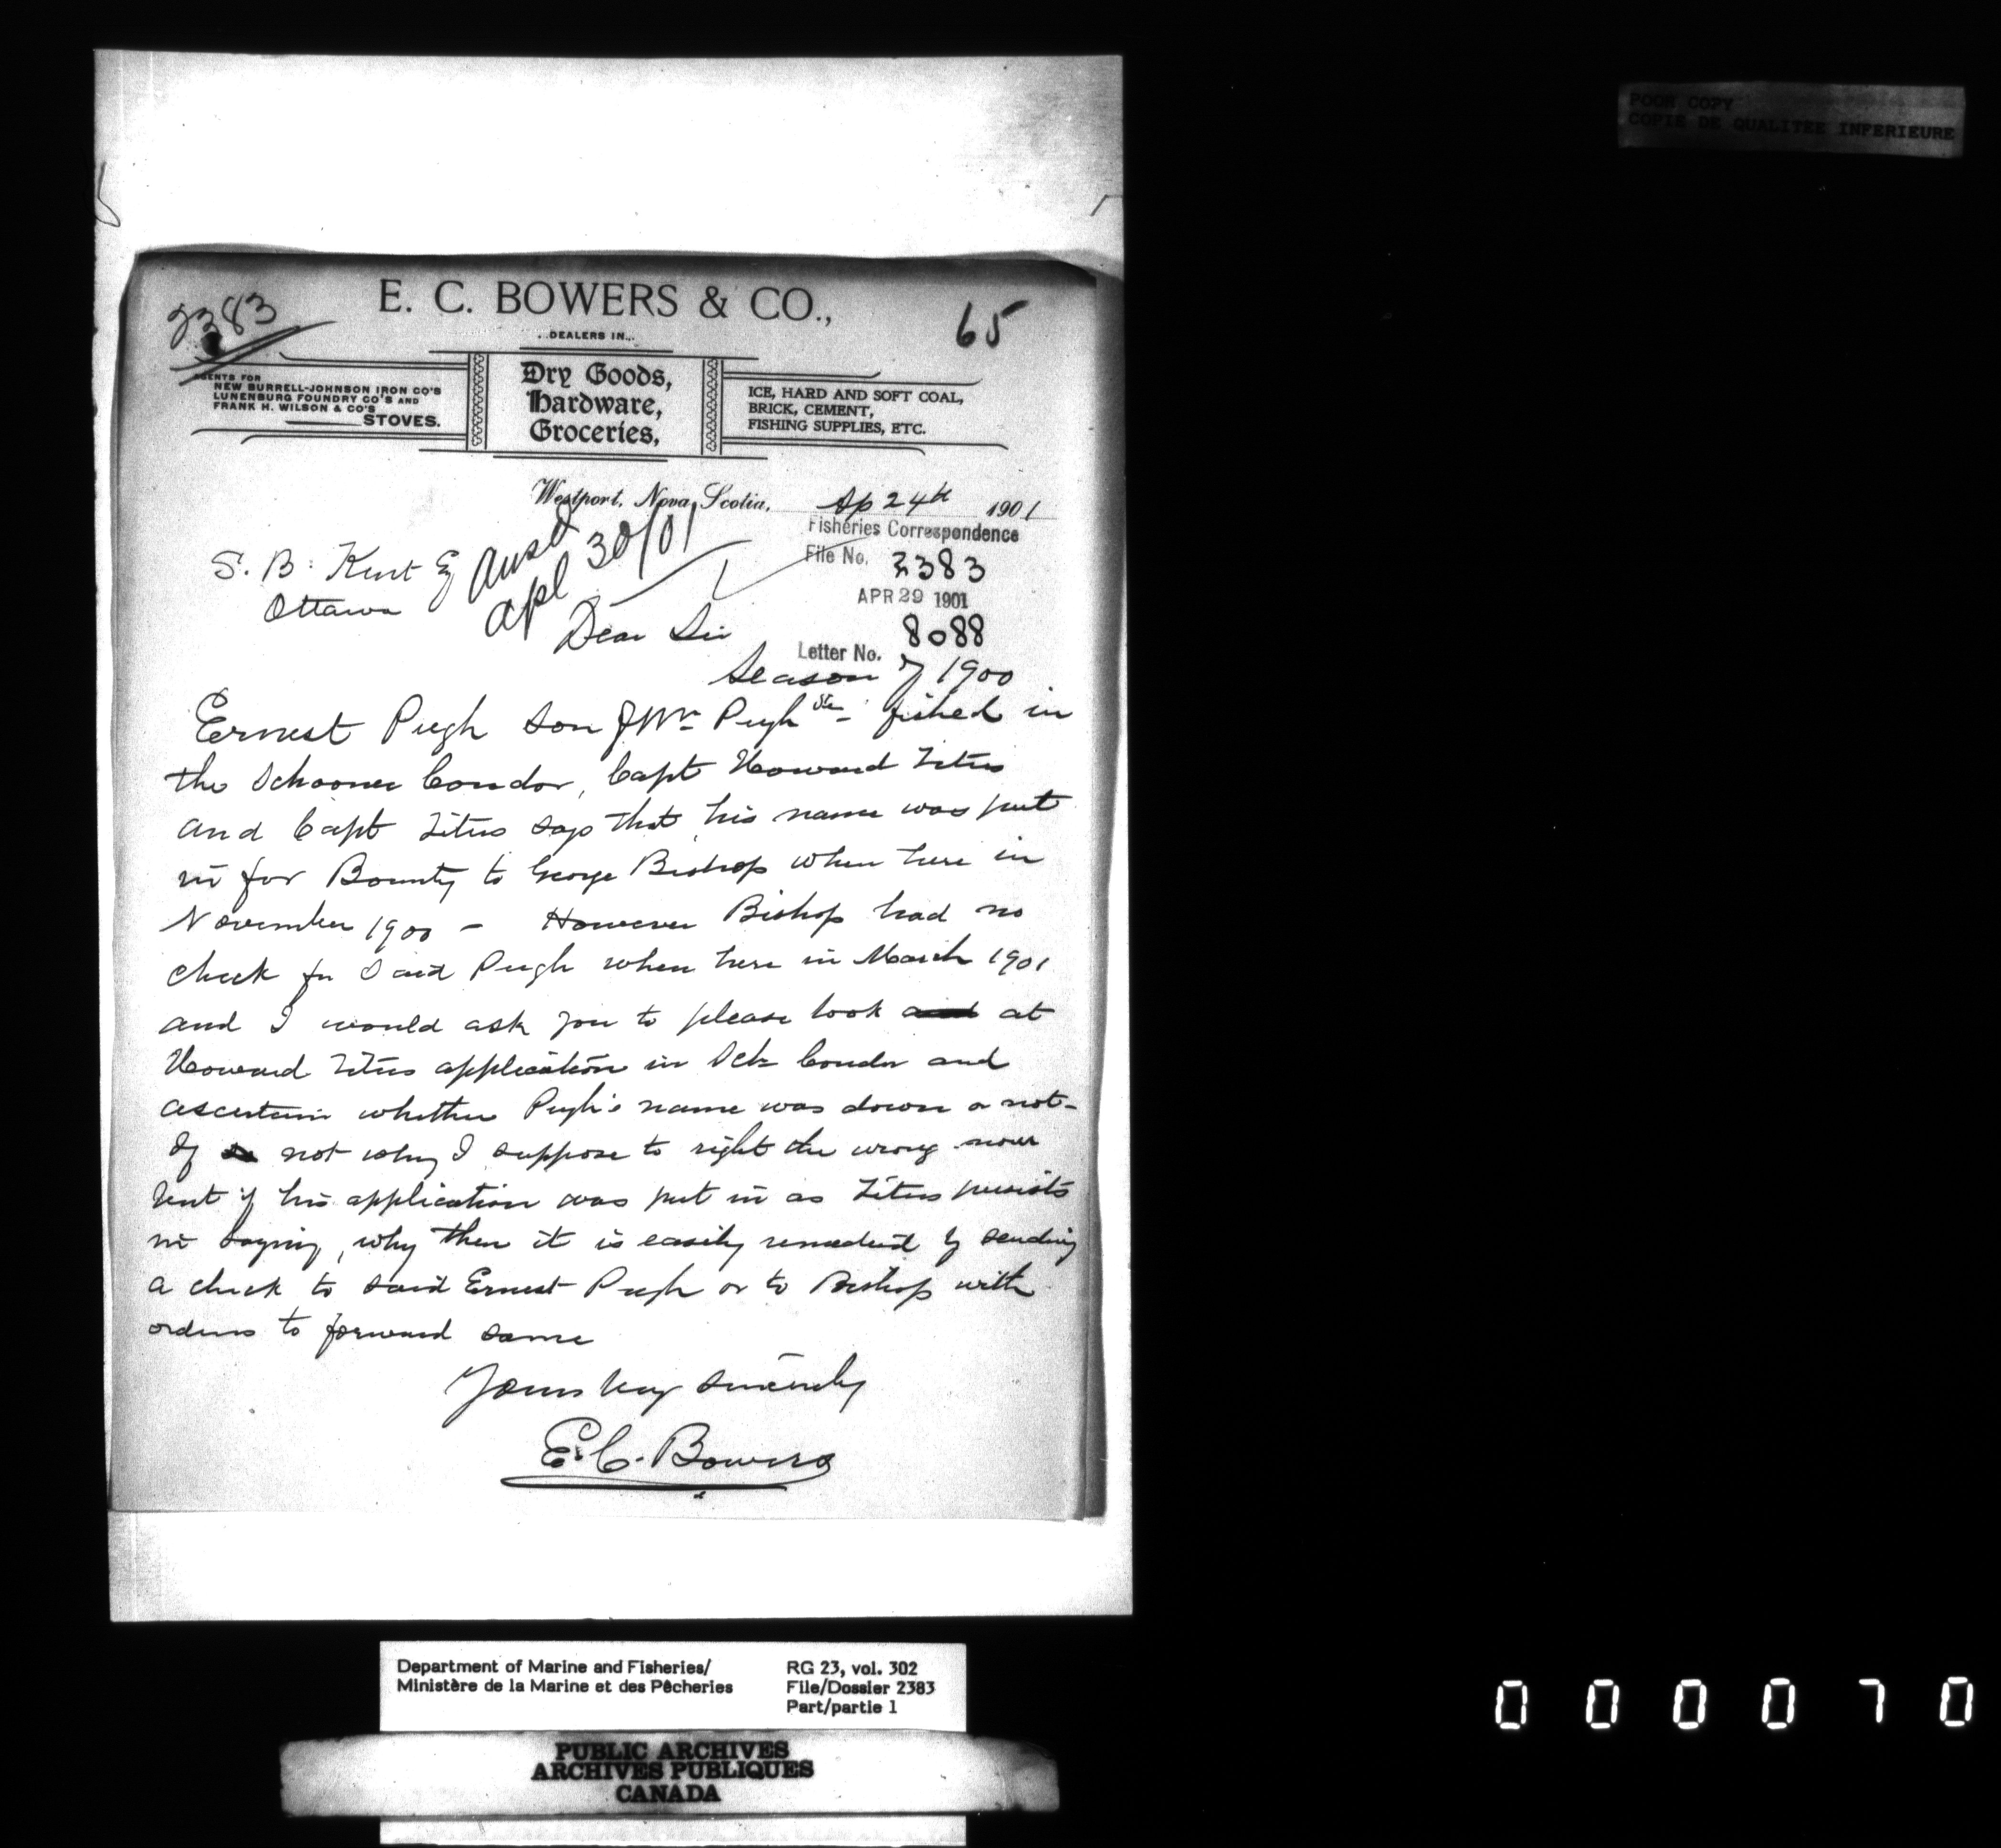 POOR COPY
COPIE DE QUALITEE INFERIEURE
2383
E. C. BOWERS & CO.,
65
..DEALERS IN...
AGENTS FOR
NEW BURRELL-JOHNSON IRON CO'S
LUNENBURG FOUNDRY CO'S AND
FRANK H. WILSON & CO'S
STOVES.
Dry Goods,
Hardware,
Groceries,
ICE, HARD AND SOFT COAL,
BRICK, CEMENT,
FISHING SUPPLIES, ETC.
Westport, Nova Scotia, Ap 24th 1901
Fisheries Correspondence
File No. 2383
APR 29 1901
8088
Letter No.
S. B. Kent Esq
Ottawa
Ansd
Apl 30/01
Dear Sir
Season of 1900
Ernest Pugh son of Wm Pugh Sr - fished in
the Schooner Condor, Capt Howard Titus
and Capt Titus says that his name was put
in for Bounty to George Bishop when here in
November 1900 - However Bishop had no
check for Said Pugh when here in March 1901
and I would ask you to please look at
Howard Titus application in Sch Condor and
ascertain whether Pugh's name was down or not-
If not why I suppose to right the wrong now
but if his application was put in as Titus persists
in saying, why then it is easily remedied by sending
a check to said Ernest Pugh or to Bishop with
orders to forward same
Yours very sincerely
E. C. Bowers
Department of Marine and Fisheries/
Ministère de la Marine et des Pêcheries
RG 23, vol. 302
File/Dossier 2383
Part/partie 1
PUBLIC ARCHIVES
ARCHIVES PUBLIQUES
CANADA
000070